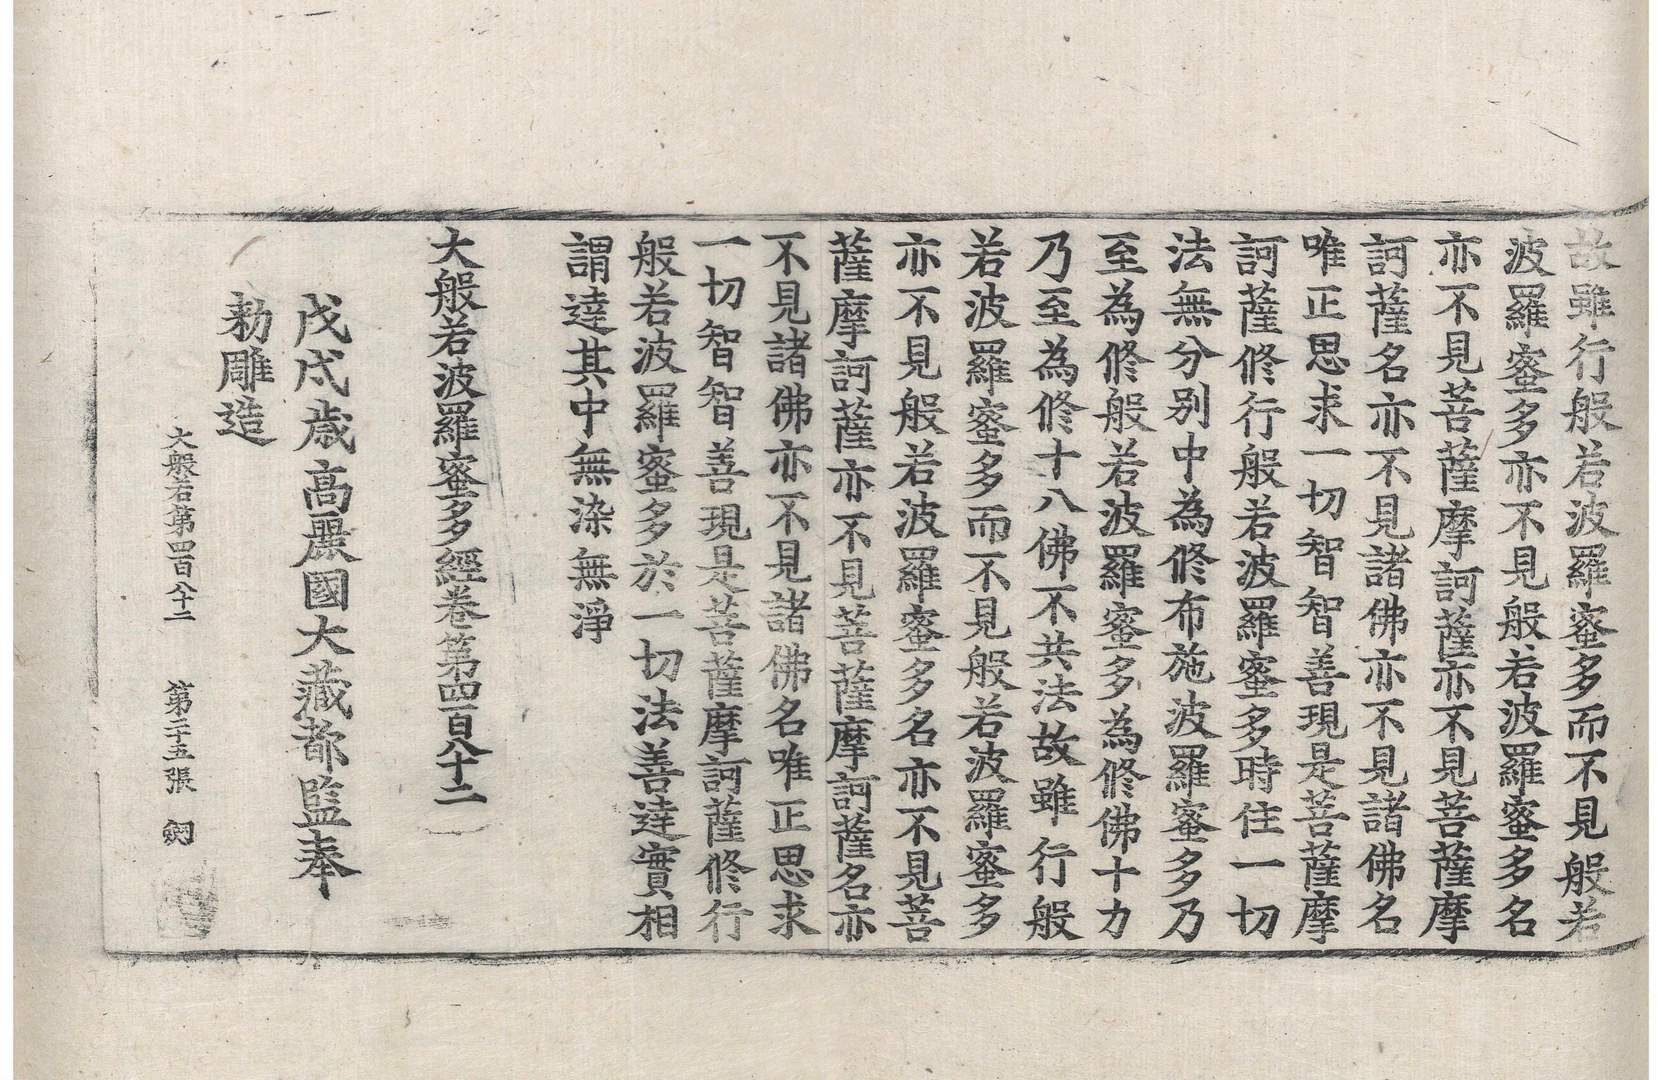 故雖行般若波羅蜜多而不見般若
波羅蜜多亦不見般若波羅蜜多名
亦不見菩薩摩訶薩亦不見菩薩摩
訶薩名亦不見諸佛亦不見諸佛名
唯正思求一切智智善現是菩薩摩
訶薩修行般若波羅蜜多時住一切
法無分別中為修布施波羅蜜多乃
至為修般若波羅蜜多為修佛十力
乃至為修十八佛不共法故雖行般
若波羅蜜多而不見般若波羅蜜多
亦不見般若波羅蜜多名亦不見菩
薩摩訶薩亦不見菩薩摩訶薩名亦
不見諸佛亦不見諸佛名唯正思求
一切智智善現是菩薩摩訶薩修行
般若波羅蜜多於一切法善達實相
謂達其中無染無淨
大般若波羅蜜多經卷第四百八十二
戊戌歲高麗國大藏都監奉
勅雕造
大般若第四百八十二 第二十五張